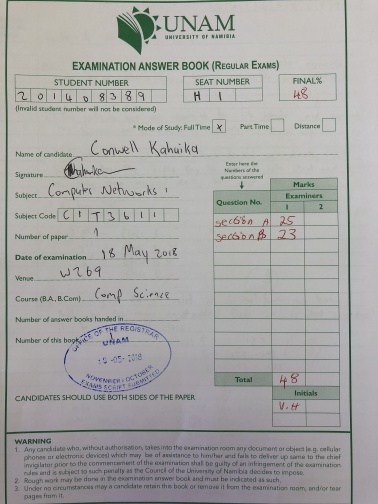 UNAM
UNIVERSITY OF NAMIBIA
EXAMINATION ANSWER BOOK (REGULAR EXAMS)
STUDENT NUMBER SEAT NUMBER FINAL%
2 0 1 4 0 8 3 8 9 H 1 48
(Invalid student number will not be considered)
* Mode of Study: Full Time X Part Time Distance
Name of candidate Conwell Kahaika
Signature
Enter here the Numbers of the questions answered
Subject Computer Networks 1
Marks
Question No. Examiners
1 2
Subject Code C I T 3 6 1 1
section A 25
section B 23
Number of paper 1
Date of examination 18 May 2018
Venue W269
Course (B.A., B.Com) Comp Science
Number of answer books handed in
Number of this book 1
OFFICE OF THE REGISTRAR
UNAM
-05- 2018
NOVEMBER/OCTOBER
EXAMS SCRIPT SUBMITTED
Total 48
Initials
V.H
CANDIDATES SHOULD USE BOTH SIDES OF THE PAPER
WARNING
1. Any candidate who, without authorisation, takes into the examination room any document or object (e.g. cellular
phones or electronic devices) which may be of assistance to him/her and fails to deliver up same to the chief
invigilator prior to the commencement of the examination shall be guilty of an infringement of the examination
rules and is subject to such penalty as the Council of the University of Namibia decides to impose.
2. Rough work may be done in the examination answer book and must be indicated as such.
3. Under no circumstances may a candidate retain this book or remove it from the examination room, and/or tear
pages from it.